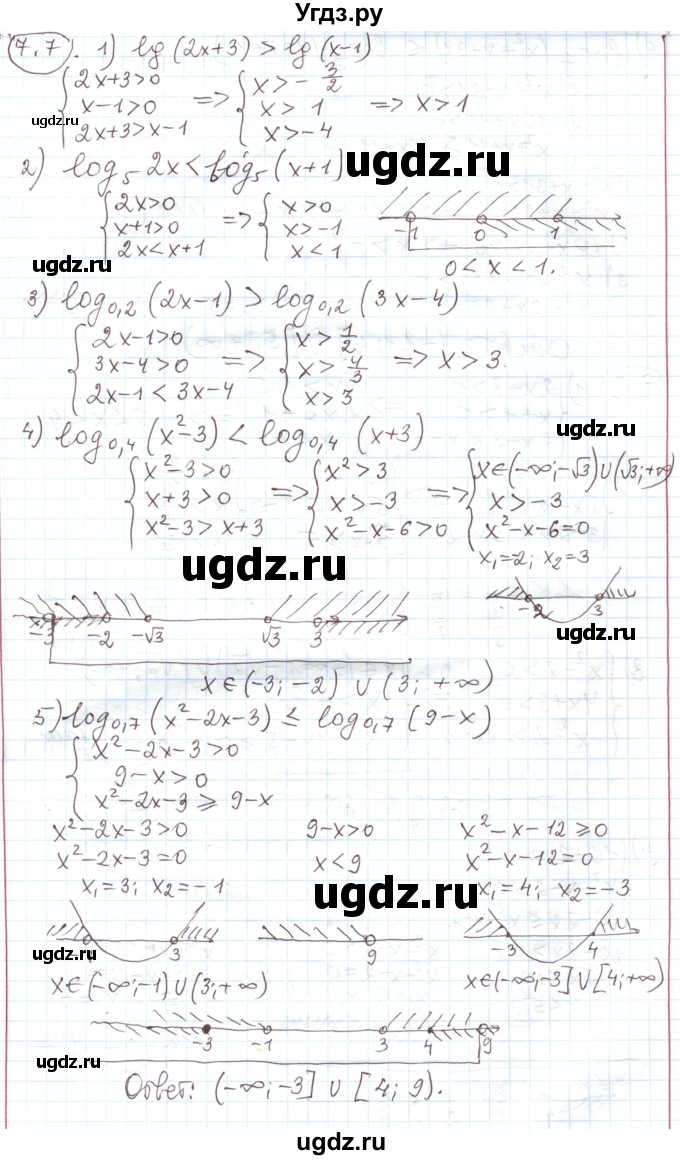 Угдз.ру
7.7). 1) lg(2x+3) > lg(x-1)
{ 2x+3>0 => { x>-3/2
x-1>0 x>1 => x>1
2x+3>x-1 x>-4
ugdz.ru
2) log₅ 2x < log₅ (x+1)
ugdz.ru
{ 2x>0 => { x>0
x+1>0 x>-1
2x<x+1 x<1
-1 0 1
0<x<1.
ugdz.ru
3) log₀,₂ (2x-1) > log₀,₂ (3x-4)
{ 2x-1>0 => { x>1/2
3x-4>0 x>4/3 => x>3.
2x-1<3x-4 x>3
4) log₀,₄ (x²-3) < log₀,₄ (x+3)
ugdz.ru
{ x²-3>0 => { x²>3 => { x∈(-∞;-√3)∪(√3;+∞)
x+3>0 x>-3 x>-3
x²-3>x+3 x²-x-6>0 x²-x-6=0
x₁=2; x₂=3
ugdz.ru
-2 3
-3 -2 -√3 √3 3
ugdz.ru
x∈(-3;-2) ∪ (3;+∞)
5) log₀,₇ (x²-2x-3) ≤ log₀,₇ (9-x)
{ x²-2x-3>0
9-x>0
x²-2x-3≥9-x
x²-2x-3>0 9-x>0 x²-x-12≥0
x²-2x-3=0 x<9 x²-x-12=0
x₁=3; x₂=-1 x₁=4; x₂=-3
ugdz.ru
ugdz.ru
3 9 -3 4
x∈(-∞;-1)∪(3;+∞) x∈(-∞;-3]∪[4;+∞)
-3 -1 3 4 9
ugdz.ru
Ответ: (-∞;-3] ∪ [4; 9).
ugdz.ru